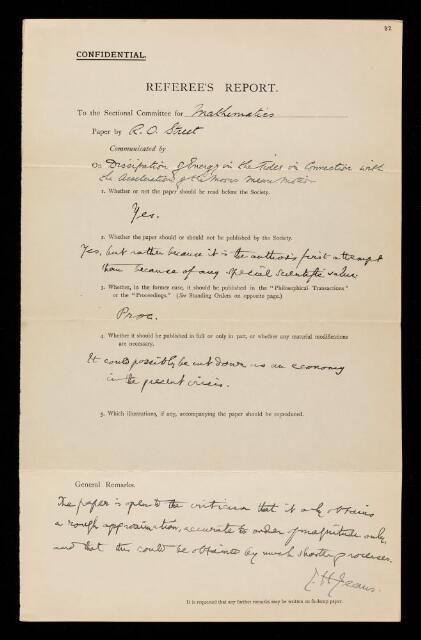 82
CONFIDENTIAL.
REFEREE'S REPORT.
To the Sectional Committee for Mathematics
Paper by R. O. Street
Communicated by
On Dissipation of Energy in the Tides in Connection with
the Acceleration of the Moon's Mean Motion
1. Whether or not the paper should be read before the Society.
Yes.
2. Whether the paper should or should not be published by the Society.
Yes, but rather because it is the author's first attempt
than because of any special scientific value
3. Whether, in the former case, it should be published in the "Philosophical Transactions"
or the "Proceedings." (See Standing Orders on opposite page.)
Proc.
4. Whether it should be published in full or only in part, or whether any material modifications
are necessary.
It could possibly be cut down as an economy
in the present crisis.
5. Which illustrations, if any, accompanying the paper should be reproduced.
General Remarks.
The paper is open to the criticism that it only obtains
a rough approximation, accurate to order of magnitude only,
and that this could be obtained by much shorter processes.
J. H. Jeans.
It is requested that any further remarks may be written on foolscap paper.